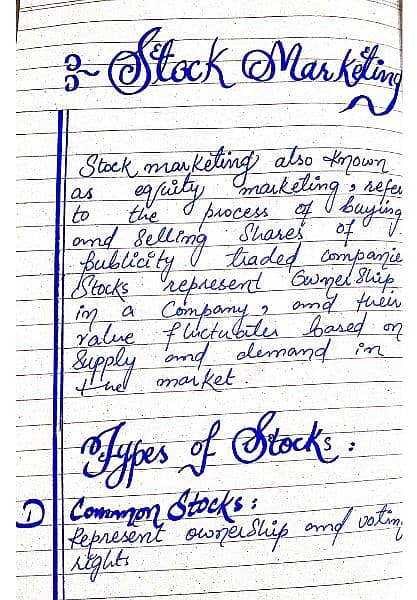 3~ Stock Marketing
Stock marketing also known
as equity marketing, refer
to the process of buying
and selling shares of
publicity traded companie
Stocks represent Ownership
in a Company, and their
value fluctuates based on
Supply and demand in
the market.
Types of Stocks:
1) Common Stocks:
Represent ownership and votin
rights